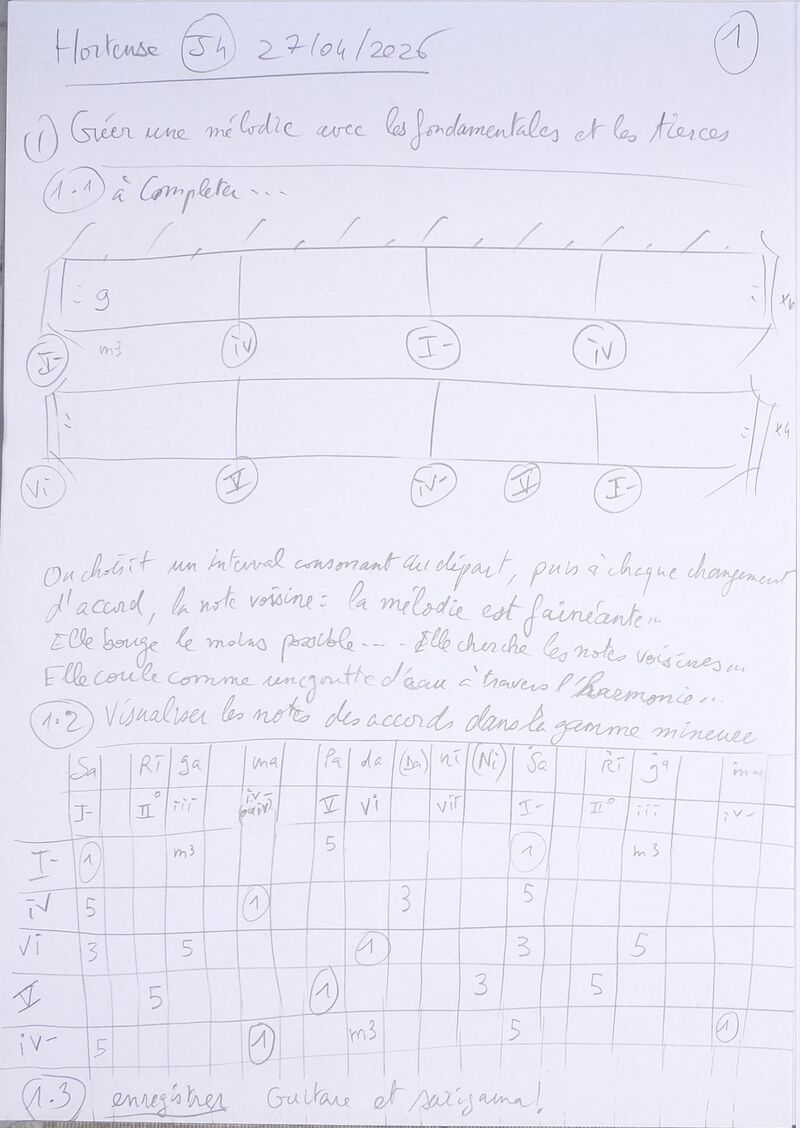 Hortense J4 27/04/2026
1
① Créer une mélodie avec les fondamentales et les tierces
1.1 à Completer ...
: g :
I- m3 iv I- iv
: : x4
vi V iv- V I-
On choisit un interval consonant au départ, puis à chaque changement
d'accord, la note voisine : la mélodie est fainéante...
Elle bouge le moins possible... Elle cherche les notes voisines...
Elle coule comme une goutte d'eau à travers l'harmonie...
1.2 Visualiser les notes des accords dans la gamme mineure
Sa Ri ga ma Pa da (Da) ni (Ni) Sa Ri ga ma
I- II° iii iv- (ou iv) V vi vii I- II° iii iv-
I- 1 m3 5 1 m3
iv 5 1 3 5
vi 3 5 1 3 5
V 5 1 3 5
iv- 5 1 m3 5 1
1.3 enregistrer Guitare et sarigama!